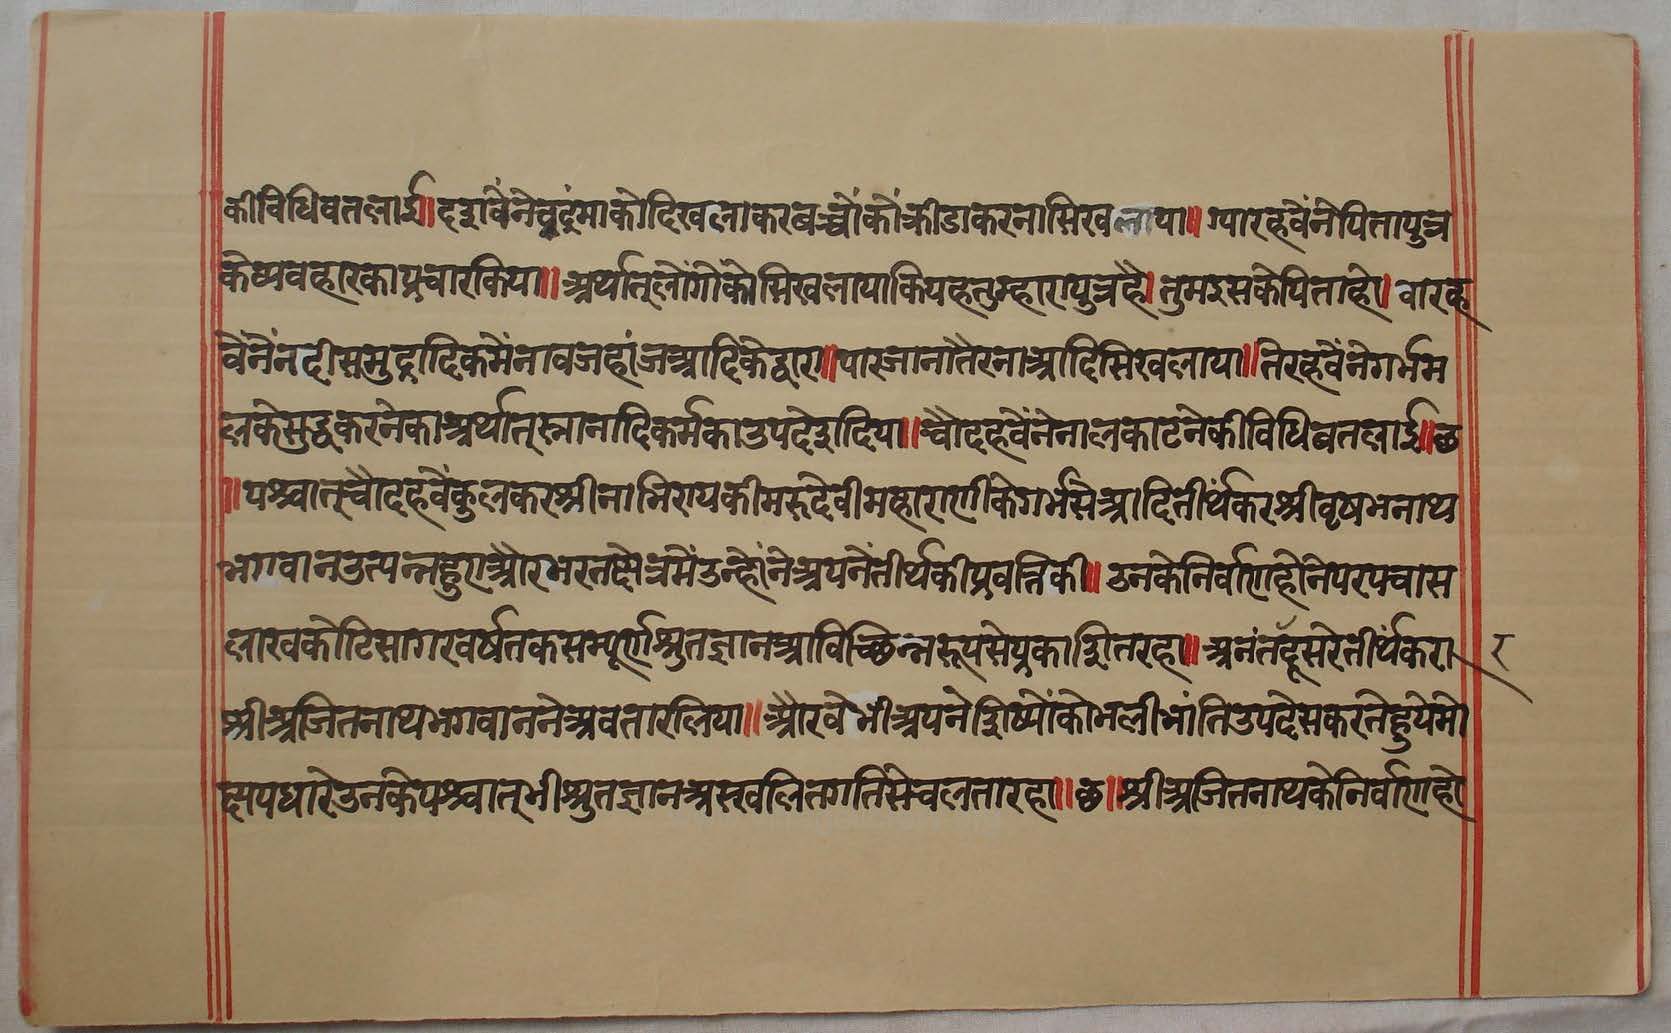 कीविधिबतलाई॥दशवेंनेचन्द्रंमाकोदिखलाकरबच्चोंकोंक्रीडाकरनासिखलाया॥ग्यारहवेंनेपितापुत्र
केव्यवहारकाप्रचारकिया॥अर्थात्लोंगोंकोसिखलायाकियहतुम्हारापुत्रहै।तुमइसकेपिताहो।बारह
वेंनेंनदीसमुद्रादिकमेंनावजहांजआदिकेद्वारा॥पारजानातैरनाआदिसिखलाया॥तेरहवेंनेगर्भम
लकेसुद्धकरनेकाअर्थात्स्नानादिकर्मकाउपदेशदिया॥चौदहवेंनेनालकाटनेकीविधिबतलाई॥छ
॥पश्चात्चौदहवेंकुलकरश्रीनाभिरायकीमरुदेवीमहाराणीकेगर्भसेआदितीर्थंकरश्रीवृषभनाथ
भगवानउत्पन्नहुएऔरभरतक्षेत्रमेंउन्होंनेअपनेंतीर्थकीप्रवत्तिकी॥उनकेनिर्वाणहोनेपरपचास
लाखकोटिसागरवर्षतकसम्पूर्णश्रुतज्ञानआविच्छिन्नरूपसेप्रकाशितरहा॥अनंतंदूसरेतीर्थंकरा र
श्रीअजितनाथभगवाननेअवतारलिया॥औरवेभीअपनेशिष्योंकोभलीभांतिउपदेसकरतेहुयेमो
क्षपधारेउनकेपश्चात्भीश्रुतज्ञानअस्खलितगतिसेचलतारहा॥छ॥श्रीअजितनाथकेनिर्वाणहो